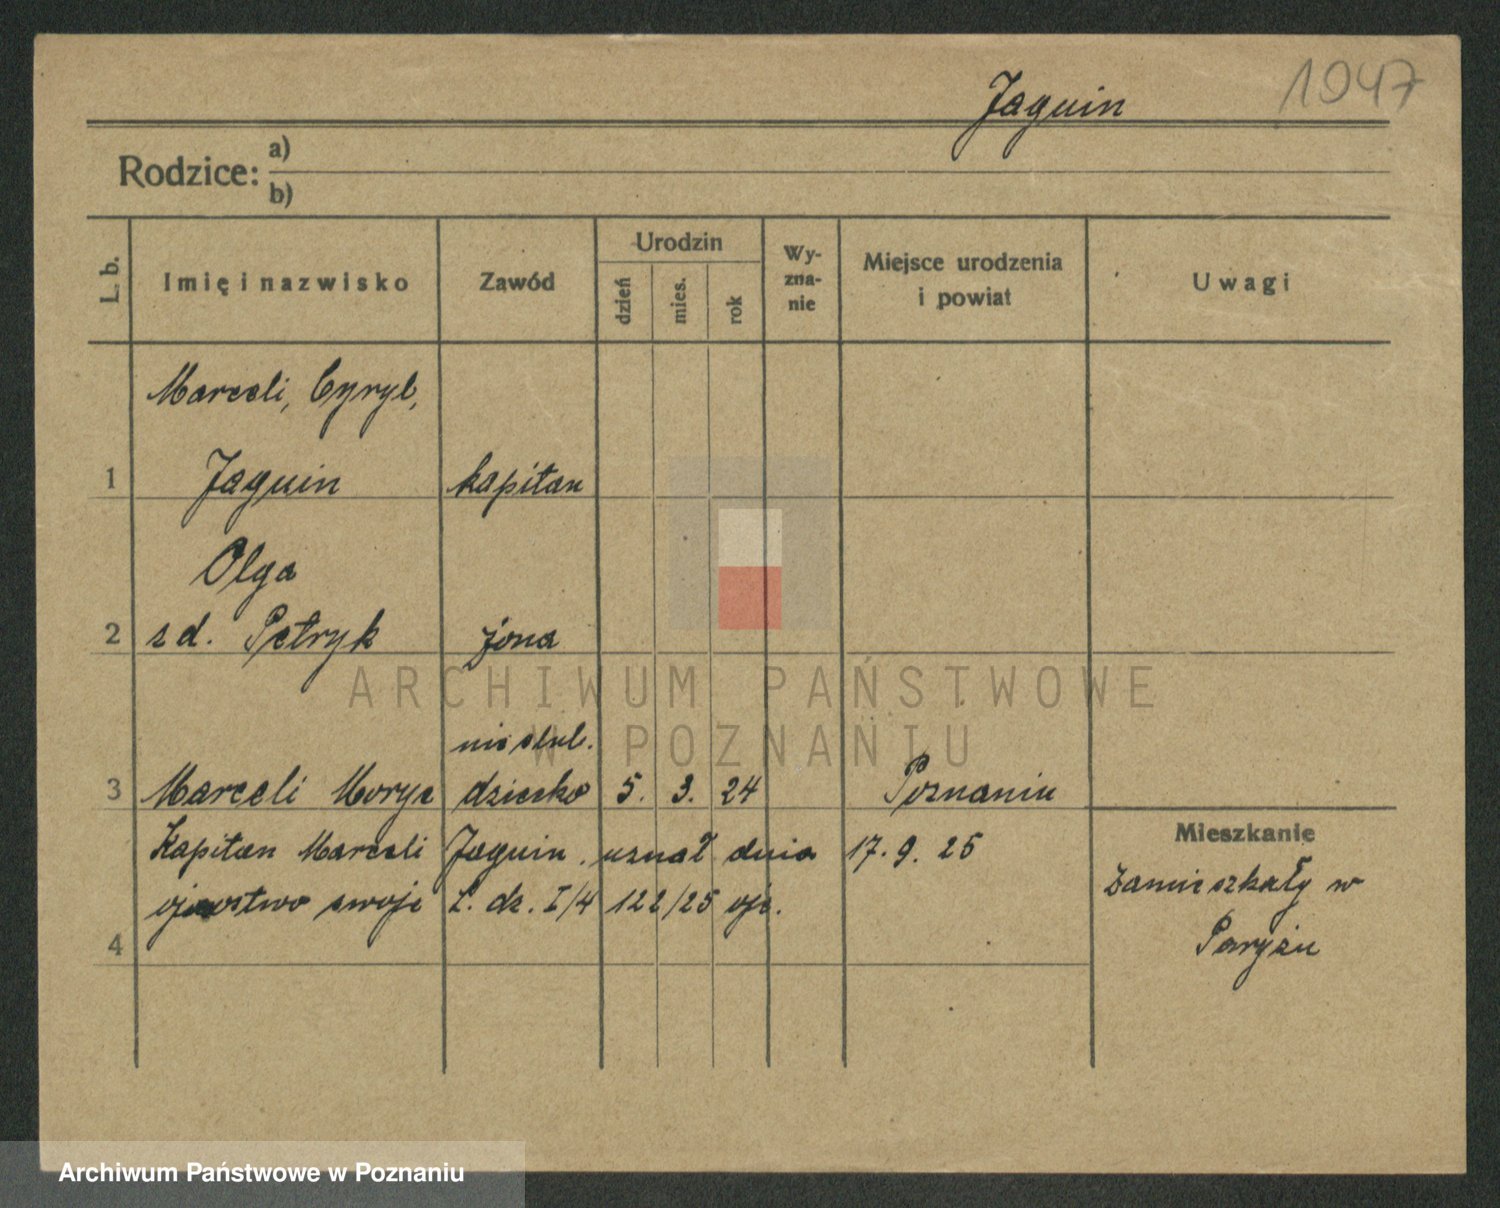 Jaguin 1947
Rodzice: a)
b)
L. b. Imię i nazwisko Zawód Urodzin dzień mies. rok Wy-zna-nie Miejsce urodzenia i powiat Uwagi
Marceli, Cyryl,
1 Jaguin kapitan
Olga
2 z d. Petryk żona
nieślub.
3 Marceli Moryc dziecko 5. 3. 24 Poznaniu
Kapitan Marceli Jaguin uznał dnia 17. 9. 25
ojcostwo swoje L. dz. I/4 122/25 ojc.
4
Mieszkanie
Zamieszkały w
Paryżu
ARCHIWUM PAŃSTWOWE
W POZNANIU
Archiwum Państwowe w Poznaniu